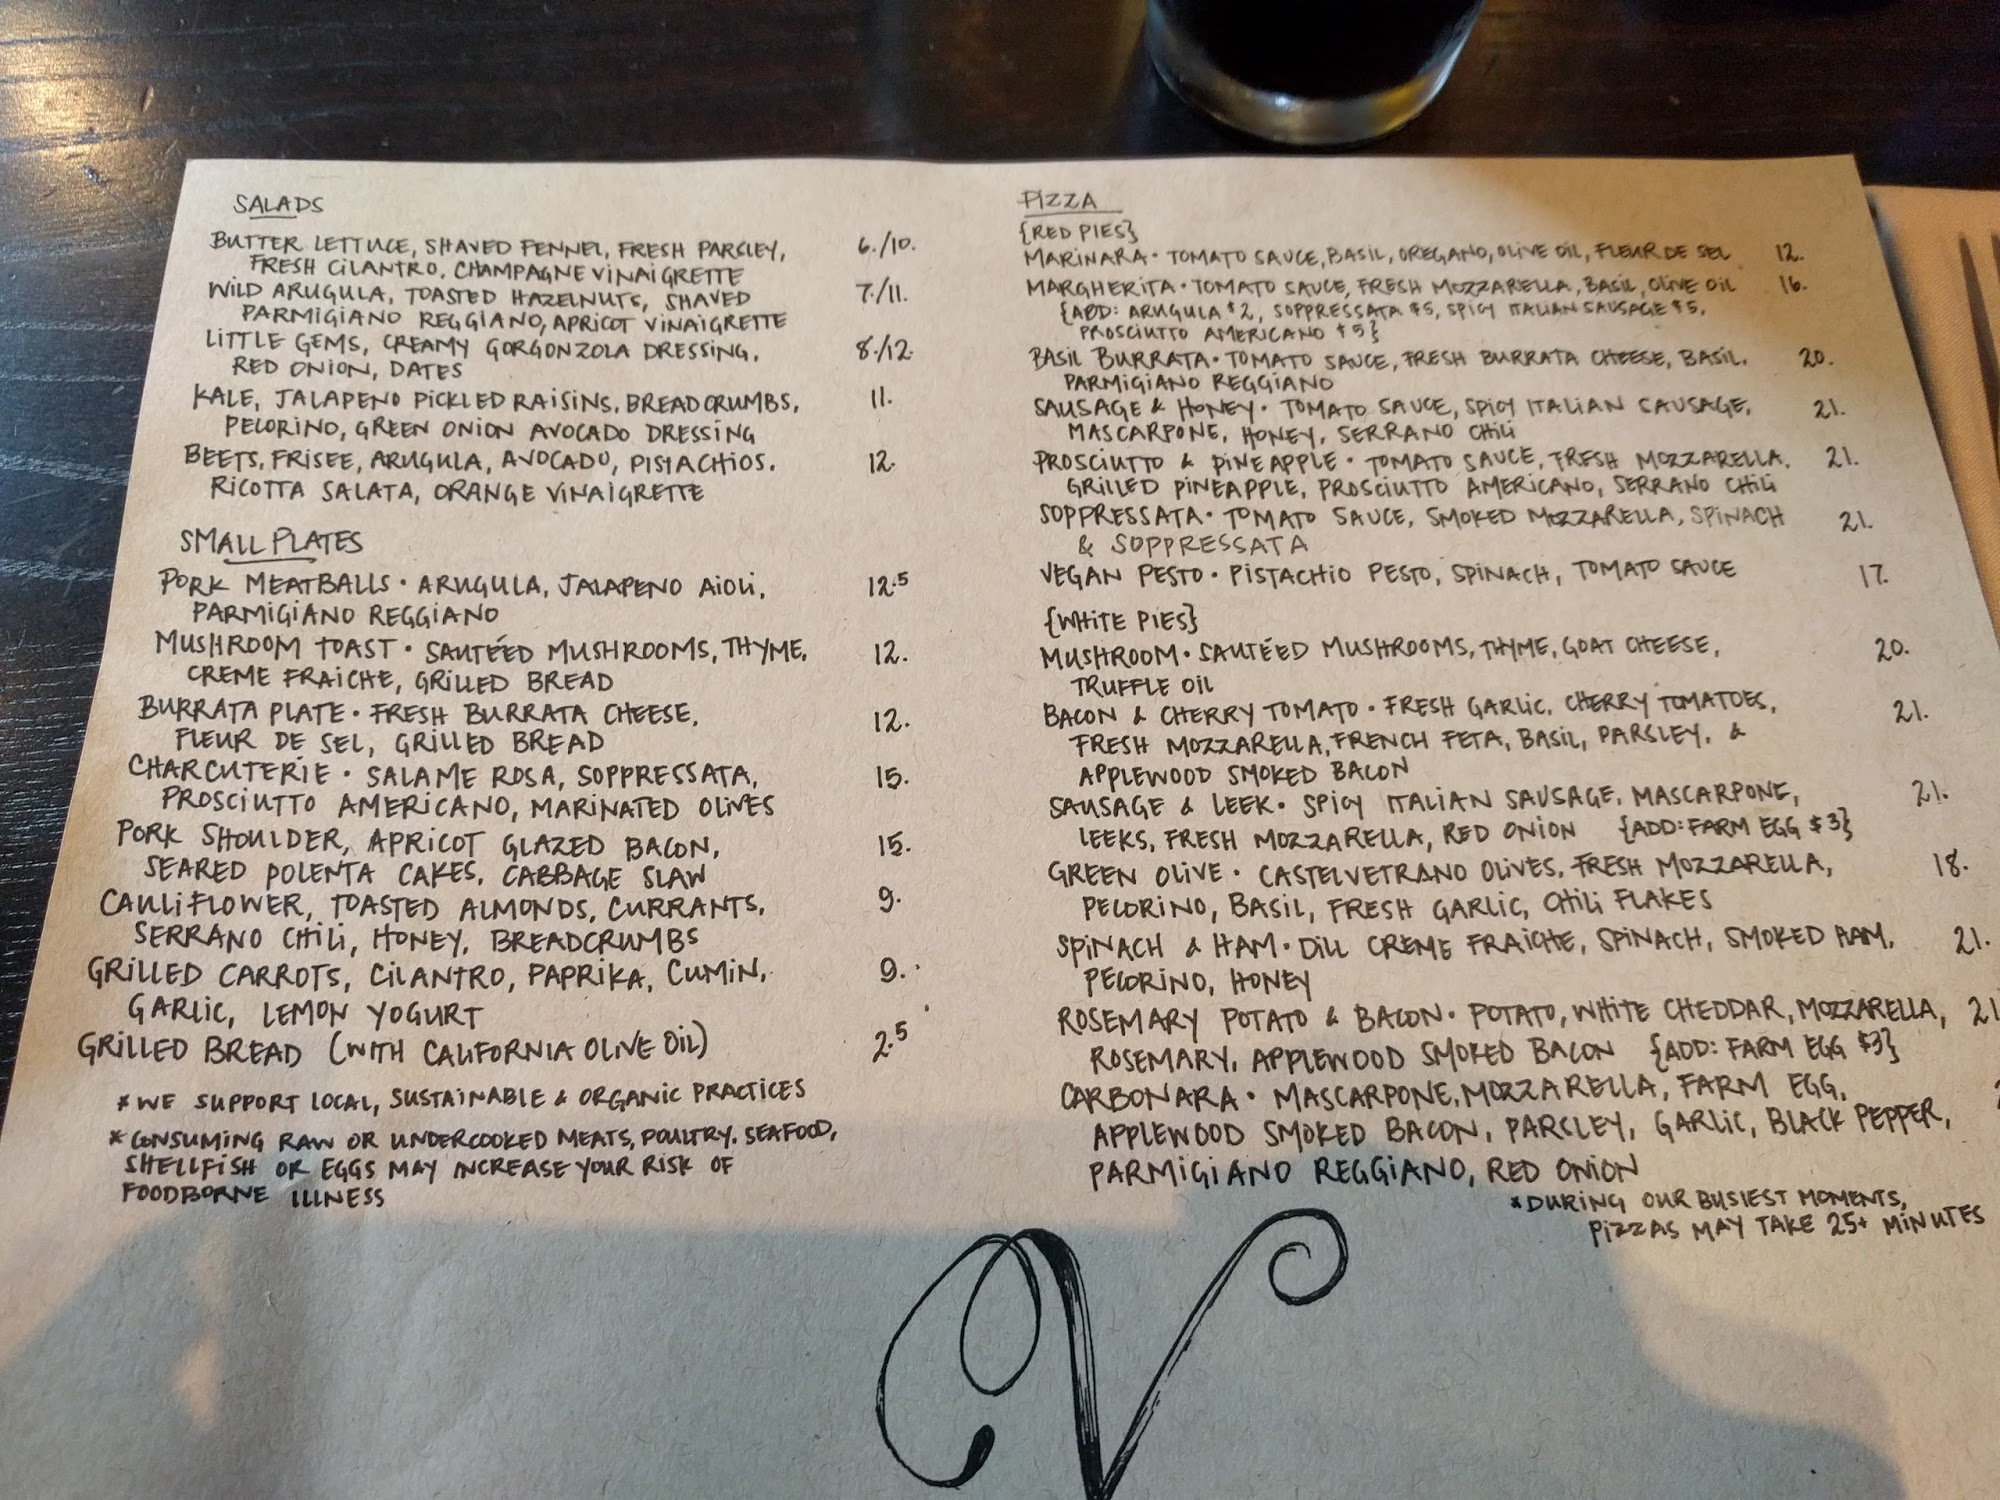 SALADS
BUTTER LETTUCE, SHAVED FENNEL, FRESH PARSLEY, 6./10.
FRESH CILANTRO, CHAMPAGNE VINAIGRETTE
WILD ARUGULA, TOASTED HAZELNUTS, SHAVED 7./11.
PARMIGIANO REGGIANO, APRICOT VINAIGRETTE
LITTLE GEMS, CREAMY GORGONZOLA DRESSING, 8./12.
RED ONION, DATES
KALE, JALAPENO PICKLED RAISINS, BREADCRUMBS, 11.
PECORINO, GREEN ONION AVOCADO DRESSING
BEETS, FRISEE, ARUGULA, AVOCADO, PISTACHIOS, 12.
RICOTTA SALATA, ORANGE VINAIGRETTE
SMALL PLATES
PORK MEATBALLS · ARUGULA, JALAPENO AIOLI, 12.5
PARMIGIANO REGGIANO
MUSHROOM TOAST · SAUTÉED MUSHROOMS, THYME, 12.
CREME FRAICHE, GRILLED BREAD
BURRATA PLATE · FRESH BURRATA CHEESE, 12.
FLEUR DE SEL, GRILLED BREAD
CHARCUTERIE · SALAME ROSA, SOPPRESSATA, 15.
PROSCIUTTO AMERICANO, MARINATED OLIVES
PORK SHOULDER, APRICOT GLAZED BACON, 15.
SEARED POLENTA CAKES, CABBAGE SLAW
CAULIFLOWER, TOASTED ALMONDS, CURRANTS, 9.
SERRANO CHILI, HONEY, BREADCRUMBS
GRILLED CARROTS, CILANTRO, PAPRIKA, CUMIN, 9.
GARLIC, LEMON YOGURT
GRILLED BREAD (WITH CALIFORNIA OLIVE OIL) 2.5
*WE SUPPORT LOCAL, SUSTAINABLE & ORGANIC PRACTICES
*CONSUMING RAW OR UNDERCOOKED MEATS, POULTRY, SEAFOOD,
SHELLFISH OR EGGS MAY INCREASE YOUR RISK OF
FOODBORNE ILLNESS
PIZZA
{RED PIES}
MARINARA · TOMATO SAUCE, BASIL, OREGANO, OLIVE OIL, FLEUR DE SEL 12.
MARGHERITA · TOMATO SAUCE, FRESH MOZZARELLA, BASIL, OLIVE OIL 16.
{ADD: ARUGULA $2, SOPPRESSATA $5, SPICY ITALIAN SAUSAGE $5,
PROSCIUTTO AMERICANO $5}
BASIL BURRATA · TOMATO SAUCE, FRESH BURRATA CHEESE, BASIL, 20.
PARMIGIANO REGGIANO
SAUSAGE & HONEY · TOMATO SAUCE, SPICY ITALIAN SAUSAGE, 21.
MASCARPONE, HONEY, SERRANO CHILI
PROSCIUTTO & PINEAPPLE · TOMATO SAUCE, FRESH MOZZARELLA, 21.
GRILLED PINEAPPLE, PROSCIUTTO AMERICANO, SERRANO CHILI
SOPPRESSATA · TOMATO SAUCE, SMOKED MOZZARELLA, SPINACH 21.
& SOPPRESSATA
VEGAN PESTO · PISTACHIO PESTO, SPINACH, TOMATO SAUCE 17.
{WHITE PIES}
MUSHROOM · SAUTÉED MUSHROOMS, THYME, GOAT CHEESE, 20.
TRUFFLE OIL
BACON & CHERRY TOMATO · FRESH GARLIC, CHERRY TOMATOES, 21.
FRESH MOZZARELLA, FRENCH FETA, BASIL, PARSLEY, &
APPLEWOOD SMOKED BACON
SAUSAGE & LEEK · SPICY ITALIAN SAUSAGE, MASCARPONE, 21.
LEEKS, FRESH MOZZARELLA, RED ONION {ADD: FARM EGG $3}
GREEN OLIVE · CASTELVETRANO OLIVES, FRESH MOZZARELLA, 18.
PECORINO, BASIL, FRESH GARLIC, CHILI FLAKES
SPINACH & HAM · DILL CREME FRAICHE, SPINACH, SMOKED HAM, 21.
PECORINO, HONEY
ROSEMARY POTATO & BACON · POTATO, WHITE CHEDDAR, MOZZARELLA, 21
ROSEMARY, APPLEWOOD SMOKED BACON {ADD: FARM EGG $3}
CARBONARA · MASCARPONE, MOZZARELLA, FARM EGG,
APPLEWOOD SMOKED BACON, PARSLEY, GARLIC, BLACK PEPPER,
PARMIGIANO REGGIANO, RED ONION
*DURING OUR BUSIEST MOMENTS,
PIZZAS MAY TAKE 25+ MINUTES
V